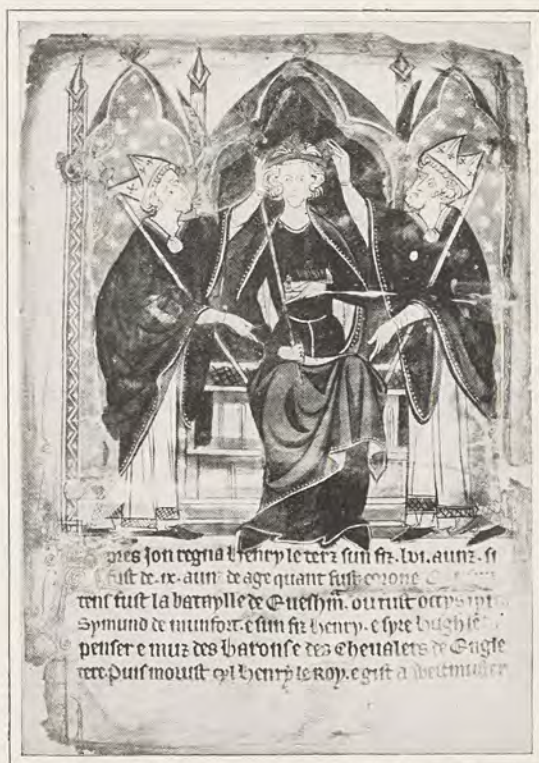 pres Jon regna Henry le terz sun fiz. lvi. aunz. si
fust de .ix. aun de age quant fust corone
tens fust la bataylle de Euesham. ou fust occys
Symund de munfort. e sun fiz Henry. e syre hughe
penser e muz des barons e des Cheualers de Engle
tere. Puis morust cyl Henry le Roy. e gist a Westmuster